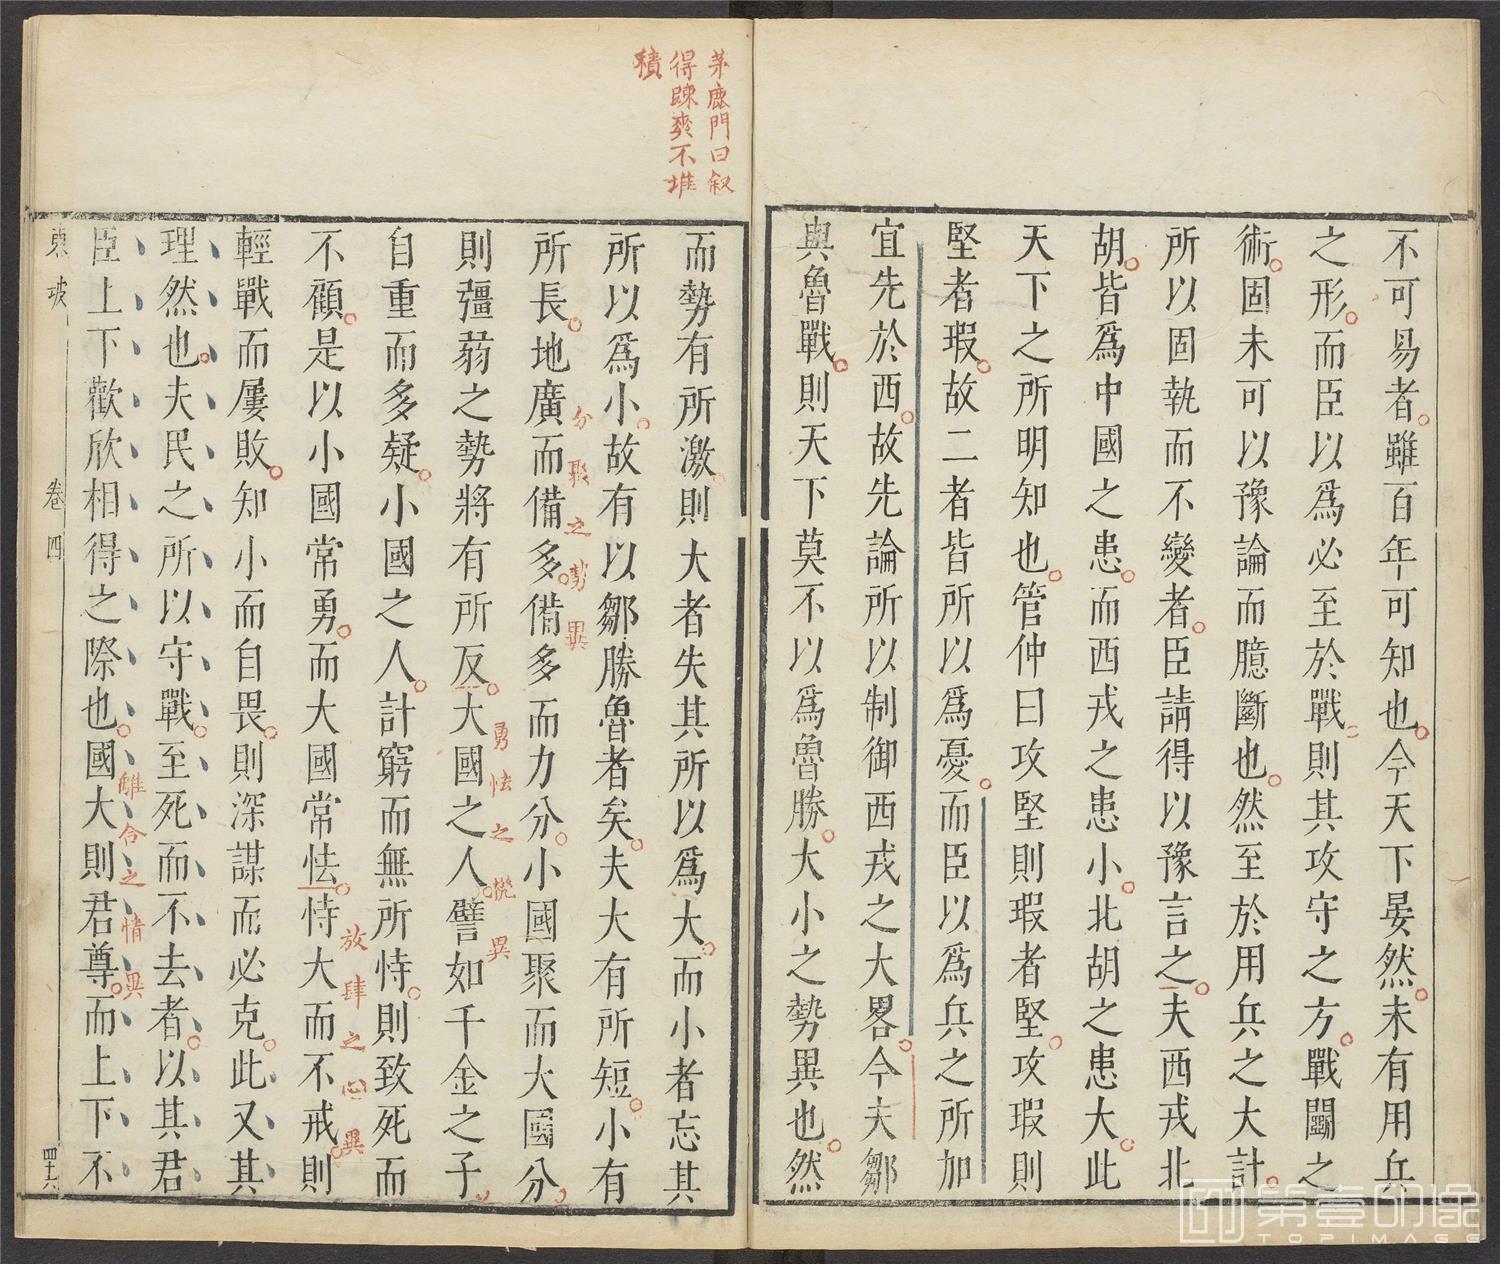 不可易者雖百年可知也今天下晏然未有用兵
之形而臣以爲必至於戰則其攻守之方戰鬭之
術固未可以豫論而臆斷也然至於用兵之大計
所以固執而不變者臣請得以豫言之夫西戎北
胡皆爲中國之患而西戎之患小北胡之患大此
天下之所明知也管仲曰攻堅則瑕者堅攻瑕則
堅者瑕故二者皆所以爲憂而臣以爲兵之所加
宜先於西故先論所以制御西戎之大畧今夫鄒
與魯戰則天下莫不以爲魯勝大小之勢異也然
茅鹿門曰叙
得踈爽不堆
積
而勢有所激則大者失其所以爲大而小者忘其
所以爲小故有以鄒勝魯者矣夫大有所短小有
所長地廣而備多備多而力分小國聚而大國分
分聚之勢異
則彊弱之勢將有所反大國之人譬如千金之子
勇怯之機異
自重而多疑小國之人計窮而無所恃則致死而
不顧是以小國常勇而大國常怯恃大而不戒則
放肆之心異
輕戰而屢敗知小而自畏則深謀而必克此又其
理然也夫民之所以守戰至死而不去者以其君
臣上下歡欣相得之際也國大則君尊而上下不
離合之情異
東坡 卷四 四十六
第壹印像
TOPIMAGE